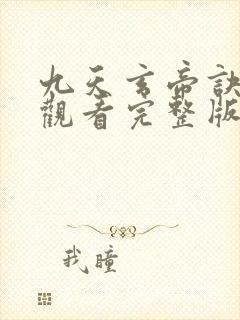 九天玄帝訣
觀看完整版
我瞳